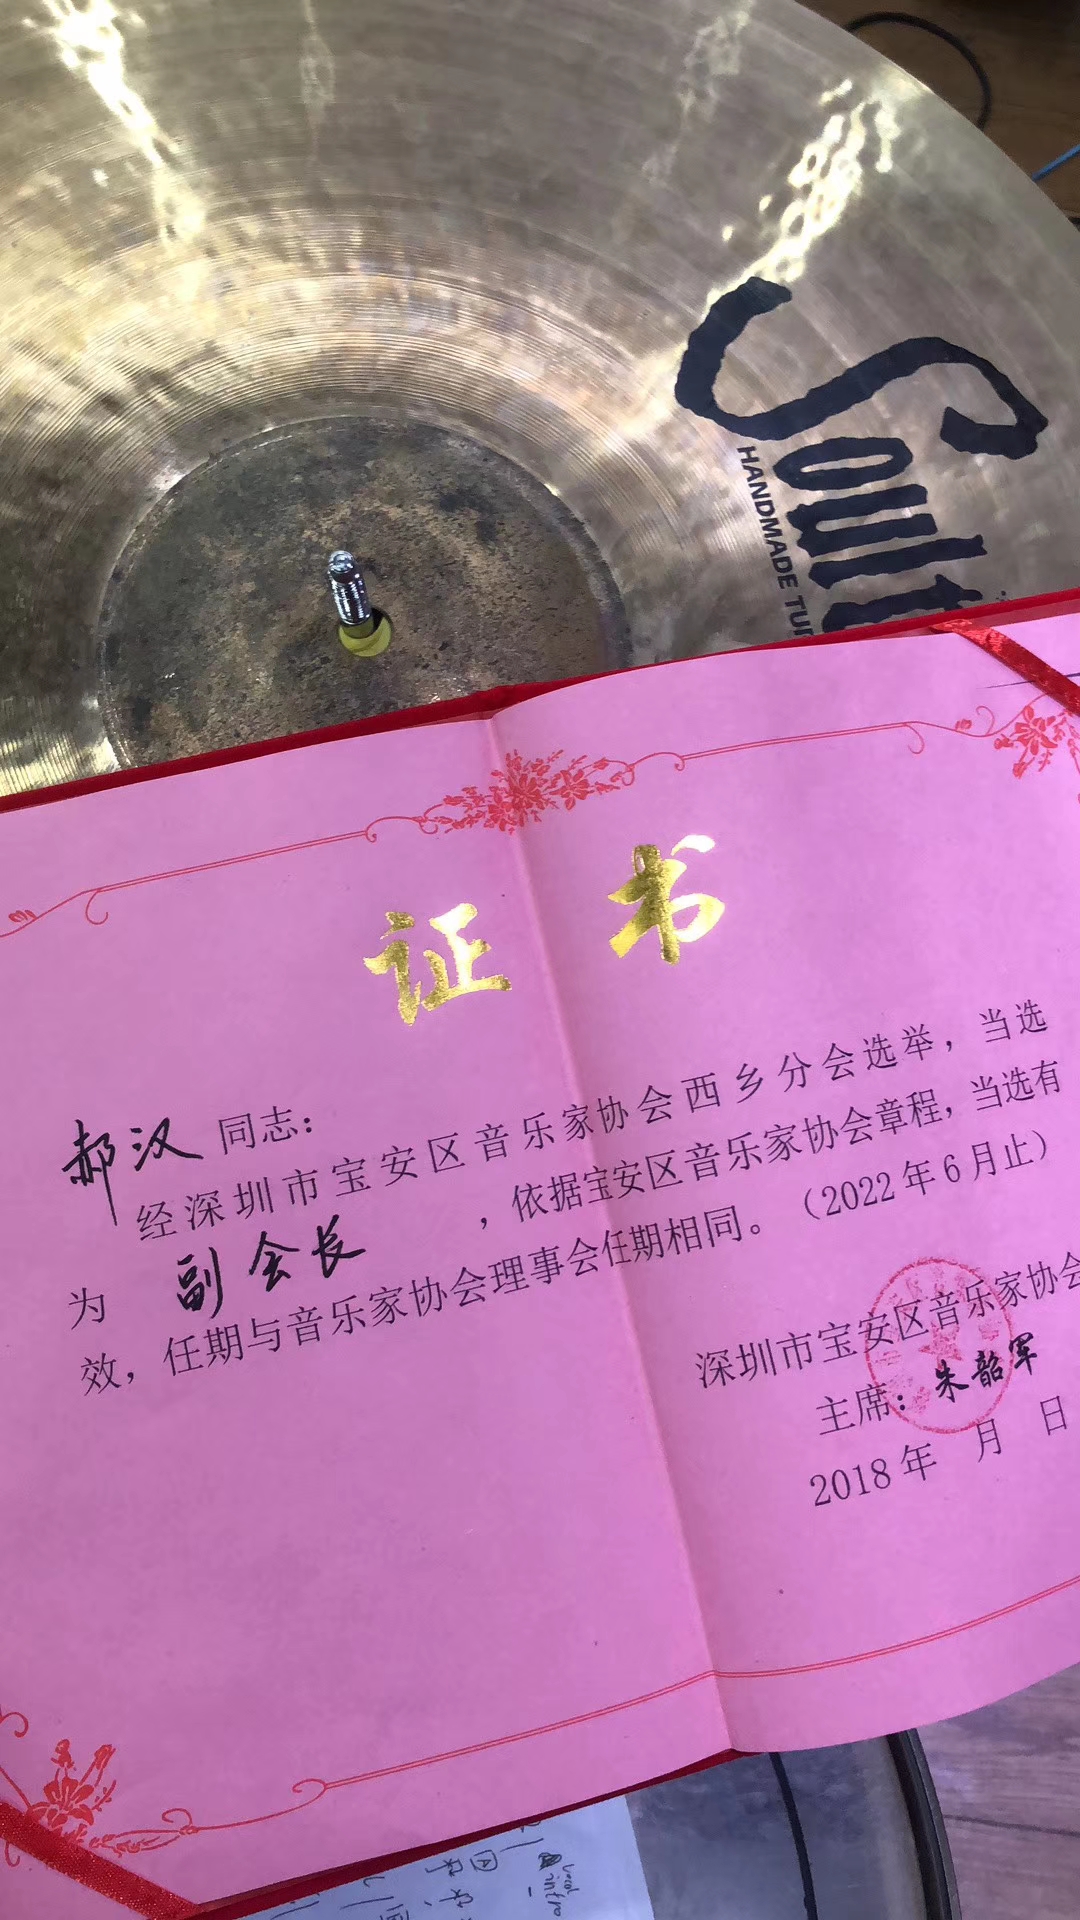 Soult
HANDMADE TUR
证书
郝汉 同志：
经深圳市宝安区音乐家协会西乡分会选举，当选
为 副会长 ，依据宝安区音乐家协会章程，当选有
效，任期与音乐家协会理事会任期相同。（2022年6月止）
深圳市宝安区音乐家协会
主席：朱韶军
2018年 月 日
vocal
intro
A